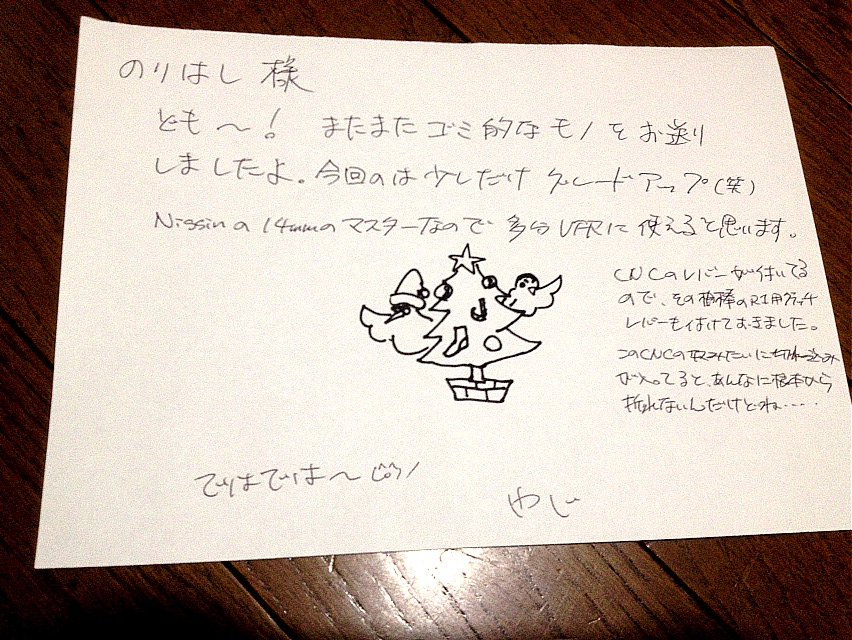 のりはし 様
ども〜! またまた ゴミ的な モノ を お送り
しましたよ。今回のは 少しだけ グレードアップ(笑)
Nissinの 14mmの マスターなので 多分 VFRに 使えると思います。
CNCのレバーが付いてる
ので、その 相棒の R1用クラッチ
レバーも付けておきました。
このCNCの みたいに 切れ込み
が入ってると、あんなに根本から
折れないんだけどね……
ではでは〜
やじ